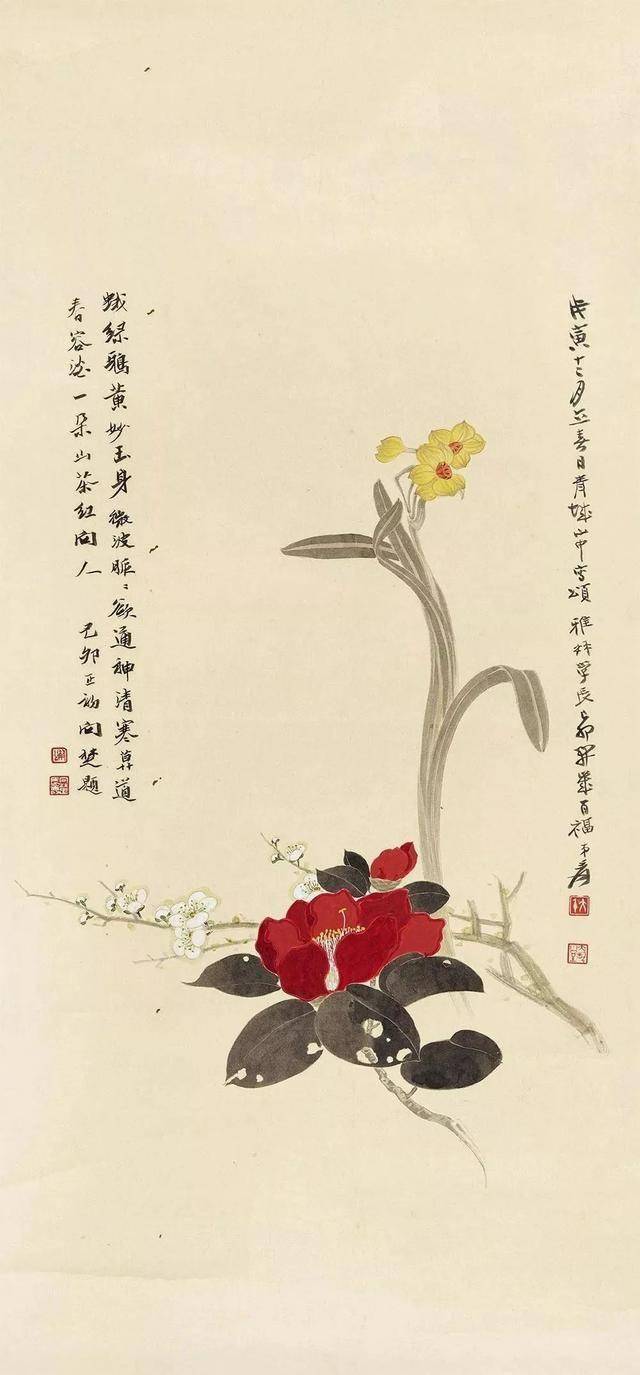 戊寅十二月立春日青城山中寫頌 雅林學長己卯開歲百福 弟爰
蛾綠鵶黃妙玉身微波脈〻欲通神清寒莫道
春容淡一朵山茶紅向人 己卯正初向楚題